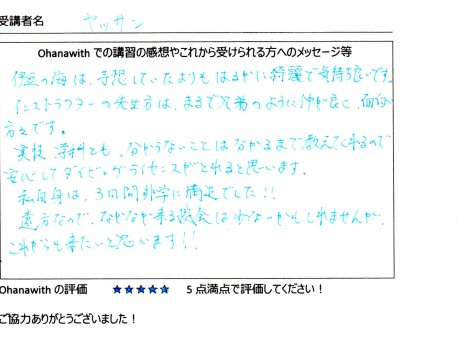 受講者名 ヤッサン
Ohanawith での講習の感想やこれから受けられる方へのメッセージ等
伊豆の海は、予想していたよりもはるかに綺麗で気持ち良いです。
インストラクターの先生方は、まるで兄弟のように仲が良く、面白い
方々です。
実技、学科とも、分からないことはわかるまで教えてくれるので
安心してダイビングライセンスがとれると思います。
私自身は、3日間非常に満足でした!!
遠方なので、なかなか来る機会は少ないかもしれませんが、
これからも来たいと思います!!
Ohanawith の評価 ★★★★★ 5 点満点で評価してください!
ご協力ありがとうございました!